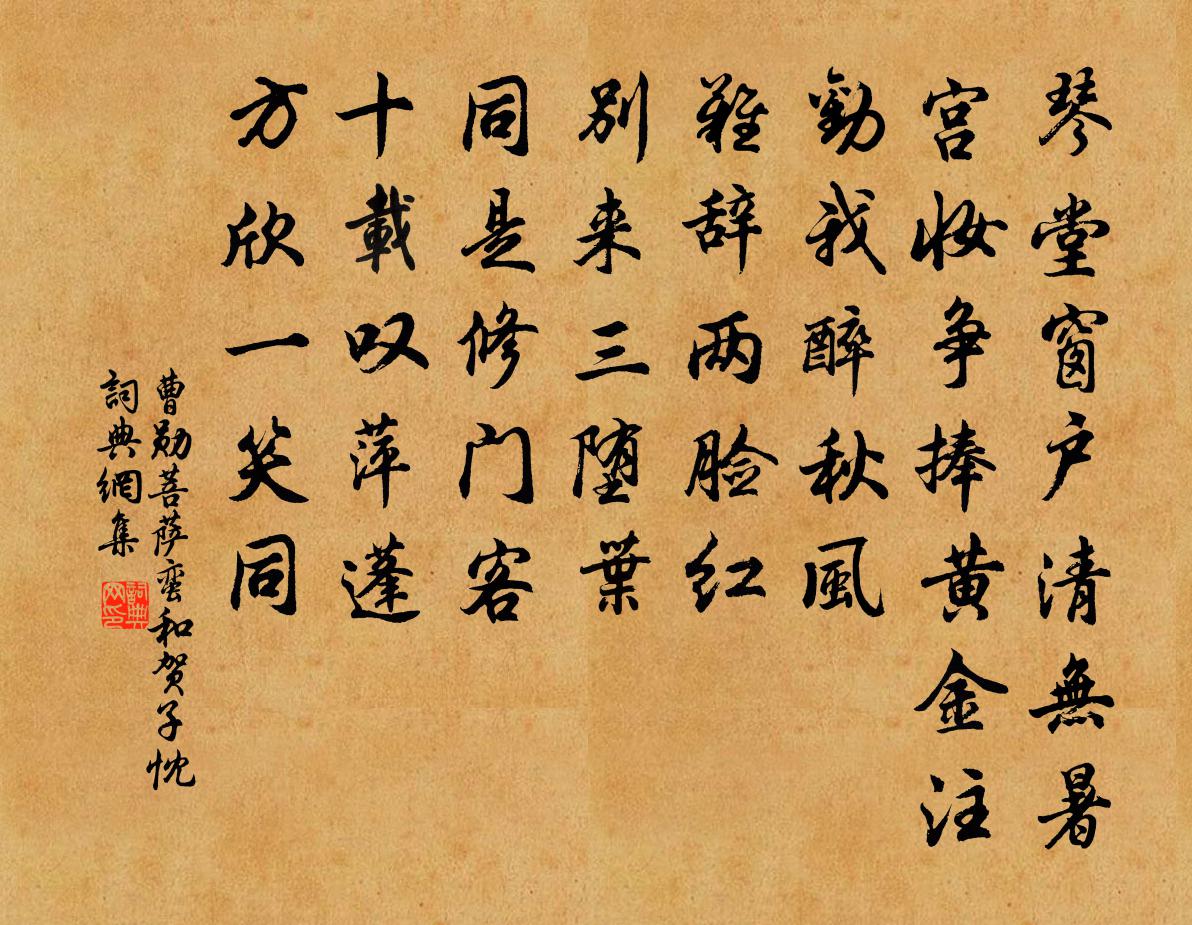 琴堂窗户清無暑
宫妆争捧黄金注
勸我醉秋風
難辞两脸红
别来三堕葉
同是修门客
十載叹萍蓬
方欣一笑同
曹勋菩萨蛮和贺子忱
詞典網集
詞典网印